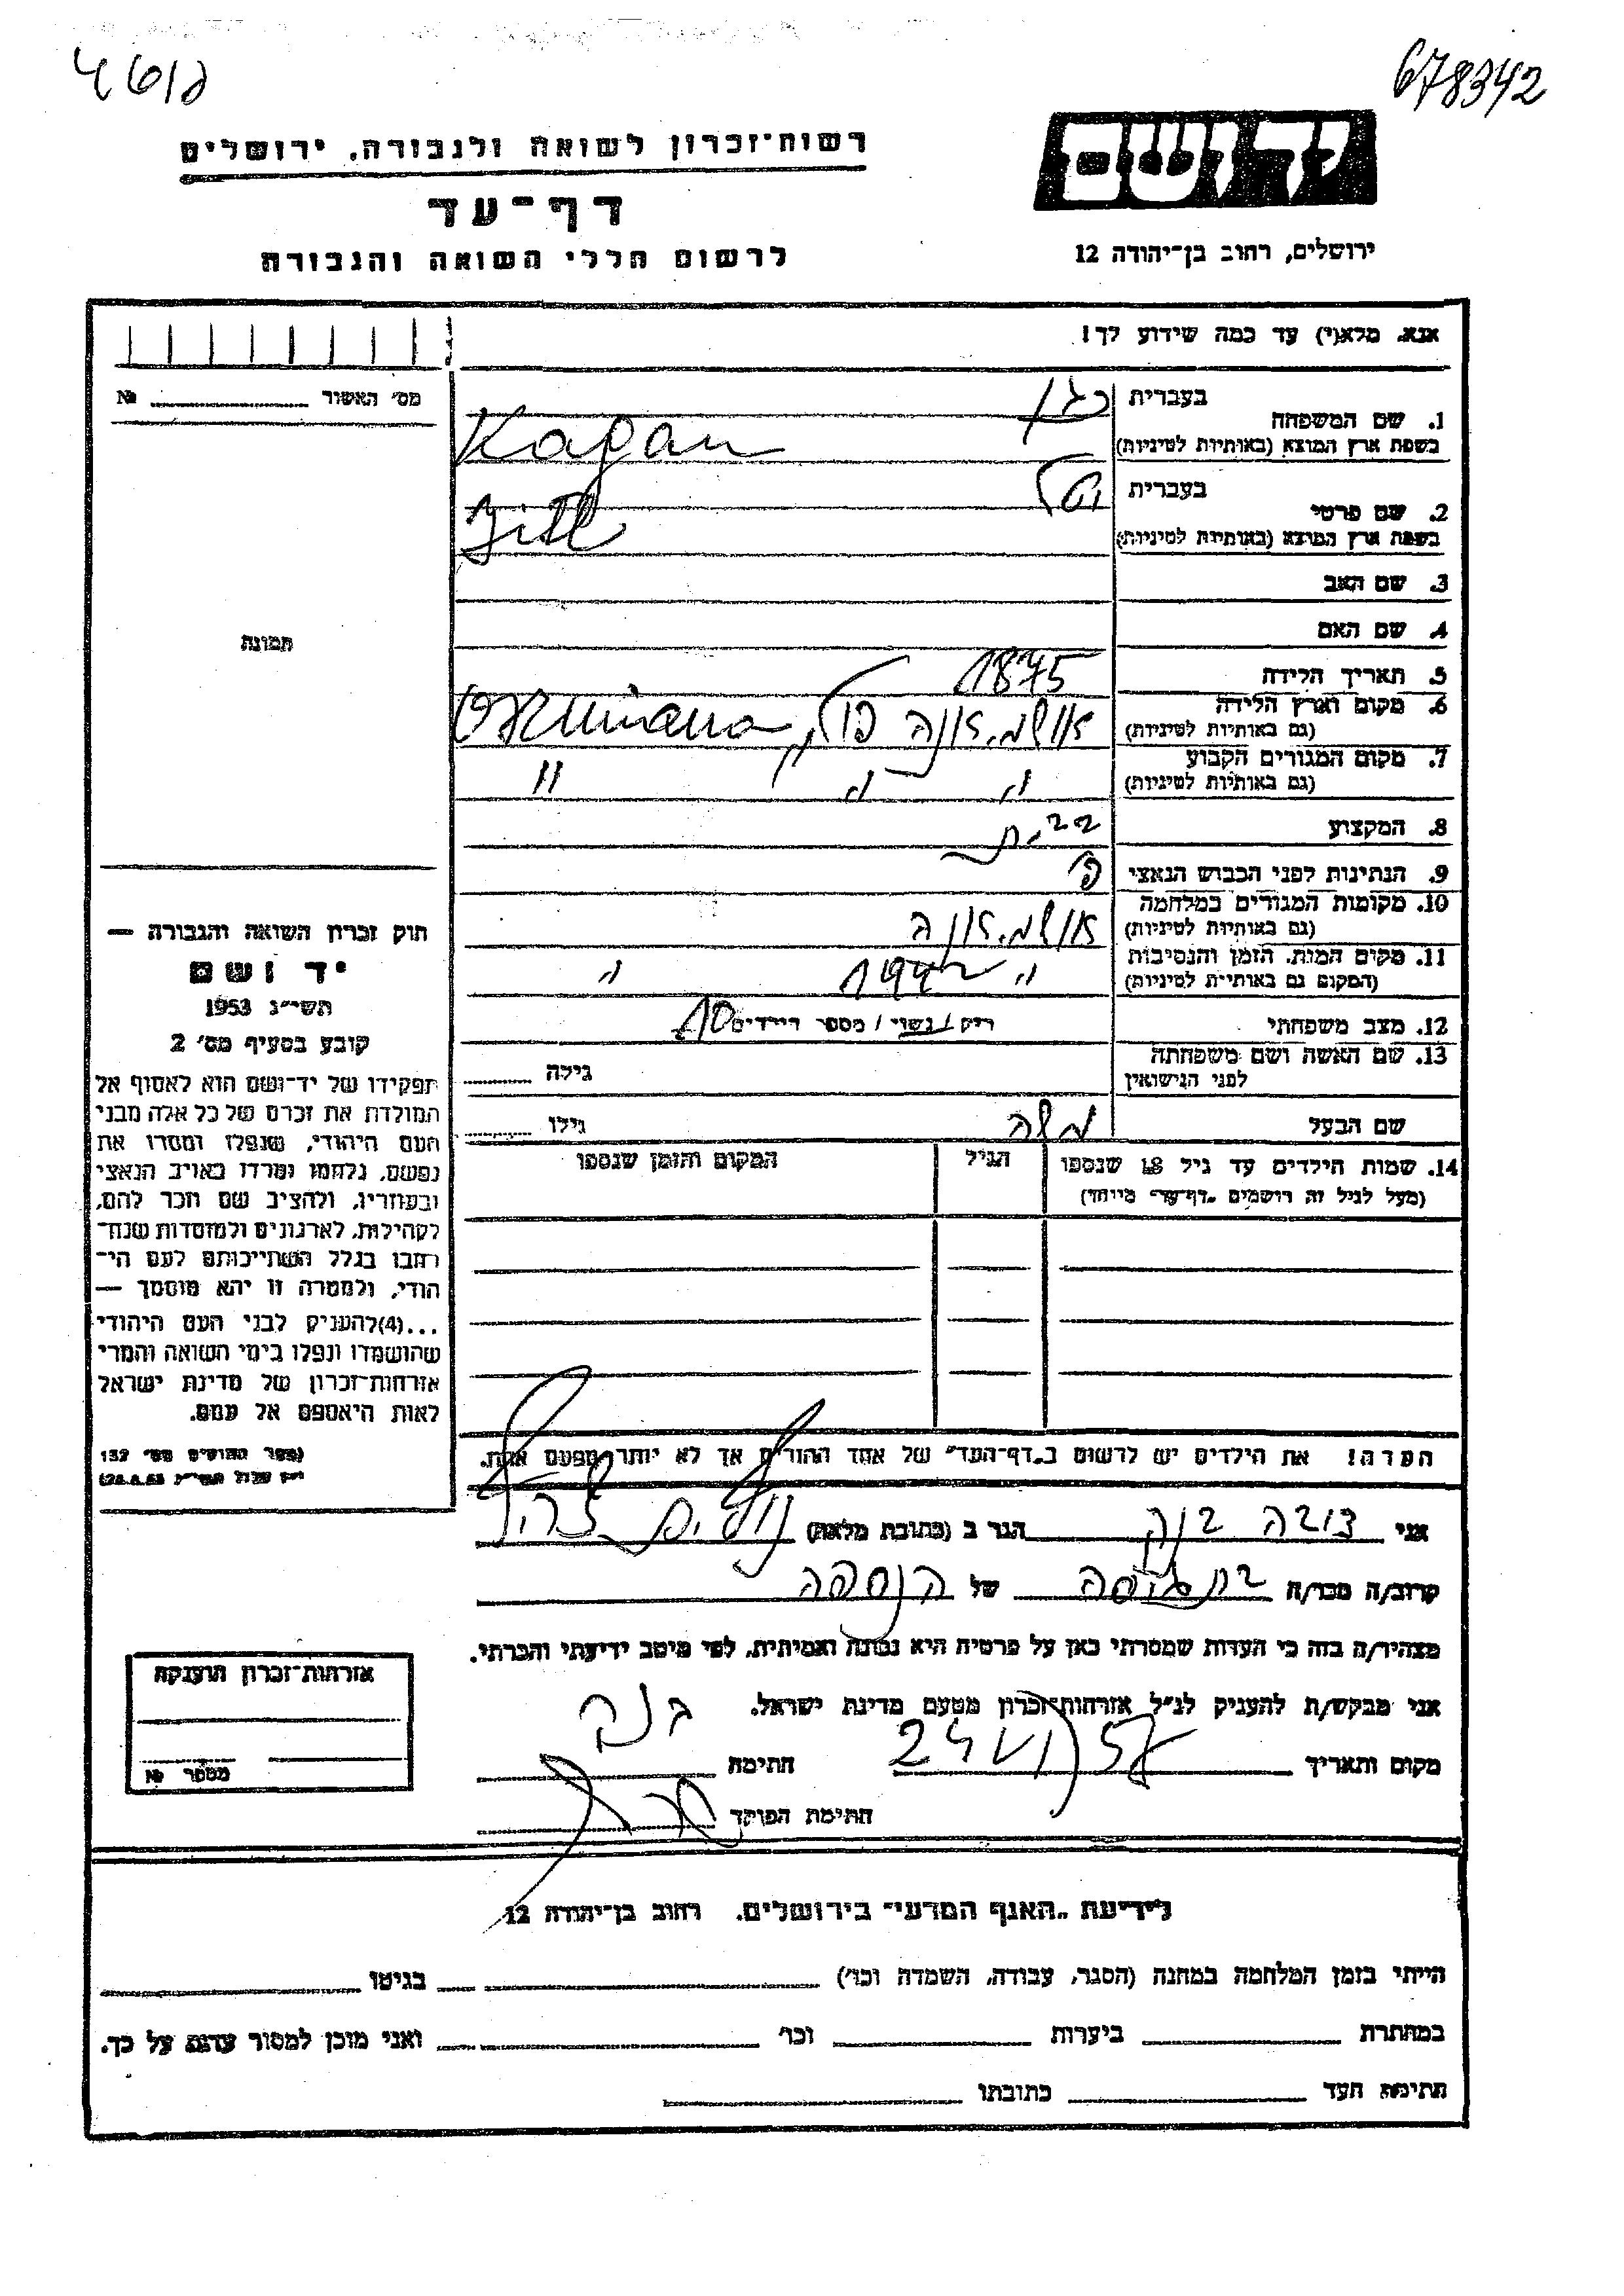 678342
רשות־זכרון לשואה ולגבורה. ירושלים
יד ושם
דף־עד
לרשום חללי השואה והגבורה
ירושלים, רחוב בן־יהודה 12
אנא, מלא(י) עד כמה שידוע לך!
מס׳ האשור № 
1. שם המשפחה
בעברית כגן
בשפת ארץ המוצא (באותיות לטיניות) Kagan
2. שם פרטי
בעברית
בשפת ארץ המוצא (באותיות לטיניות)
3. שם האב
4. שם האם
תמונה
5. תאריך הלידה 1875
6. מקום וארץ הלידה
(גם באותיות לטיניות) אושמיאנה פולין Oszmiana
7. מקום המגורים הקבוע
(גם באותיות לטיניות) " " "
8. המקצוע
9. הנתינות לפני הכבוש הנאצי פ׳
10. מקומות המגורים במלחמה
(גם באותיות לטיניות) אושמיאנה
11. מקום המות, הזמן והנסיבות
(המקום גם באותיות לטיניות) " 1942 "
12. מצב משפחתי רוק / נשוי / מספר הילדים 10
13. שם האשה ושם משפחתה
לפני הנישואין גילה
שם הבעל משה גילו
14. שמות הילדים עד גיל 18 שנספו
(מעל לגיל זה רושמים „דף־עד״ מיוחד)
הגיל
המקום והזמן שנספו
הערה! את הילדים יש לרשום ב„דף־העד״ של אחד ההורים אך לא יותר מפעם אחת.
חוק זכרון השואה והגבורה —
יד ושם
תשי״ג 1953
קובע בסעיף מס׳ 2
תפקידו של יד־ושם הוא לאסוף אל
המולדת את זכרם של כל אלה מבני
העם היהודי, שנפלו ומסרו את
נפשם, נלחמו ומרדו באויב הנאצי
ובעוזריו, ולהציב שם וזכר להם,
לקהילות, לארגונים ולמוסדות שנח־
רבו בגלל השתייכותם לעם הי־
הודי, ולמטרה זו יהא מוסמך —
...(4) להעניק לבני העם היהודי
שהושמדו ונפלו בימי השואה והמרי
אזרחות־זכרון של מדינת ישראל
לאות היאספם אל עמם.
(ספר החוקים מס׳ 132
אני הגר ב (כתובת מלאה)
קרוב/ה מכר/ה של הנספה
מצהיר/ה בזה כי העדות שמסרתי כאן על פרטיה היא נכונה ואמיתית, לפי מיטב ידיעתי והכרתי.
אני מבקש/ת להעניק לנ״ל אזרחות־זכרון מטעם מדינת ישראל.
מקום ותאריך חתימה
חתימת הפוקד
אזרחות־זכרון הוענקה
מספר №
לידיעת „האגף המדעי״ בירושלים. רחוב בן־יהודה 12
הייתי בזמן המלחמה במחנה (הסגר, עבודה, השמדה וכו׳) בגיטו
במחתרת ביערות וכו׳ ואני מוכן למסור עדות על כך.
חתימת העד כתובתו